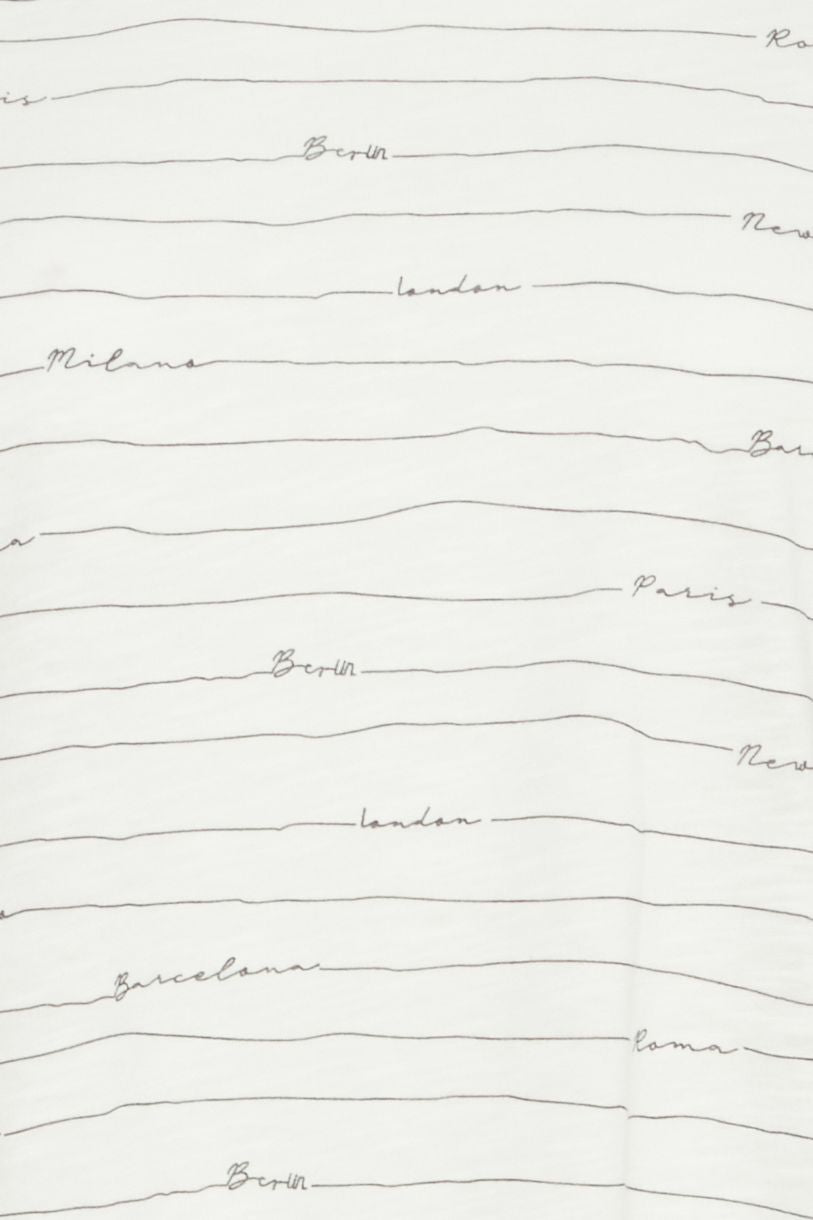 Ro
is
Berlin
New
london
Milano
Bar
a
Paris
Berlin
New
london
Barcelona
Roma
Berlin